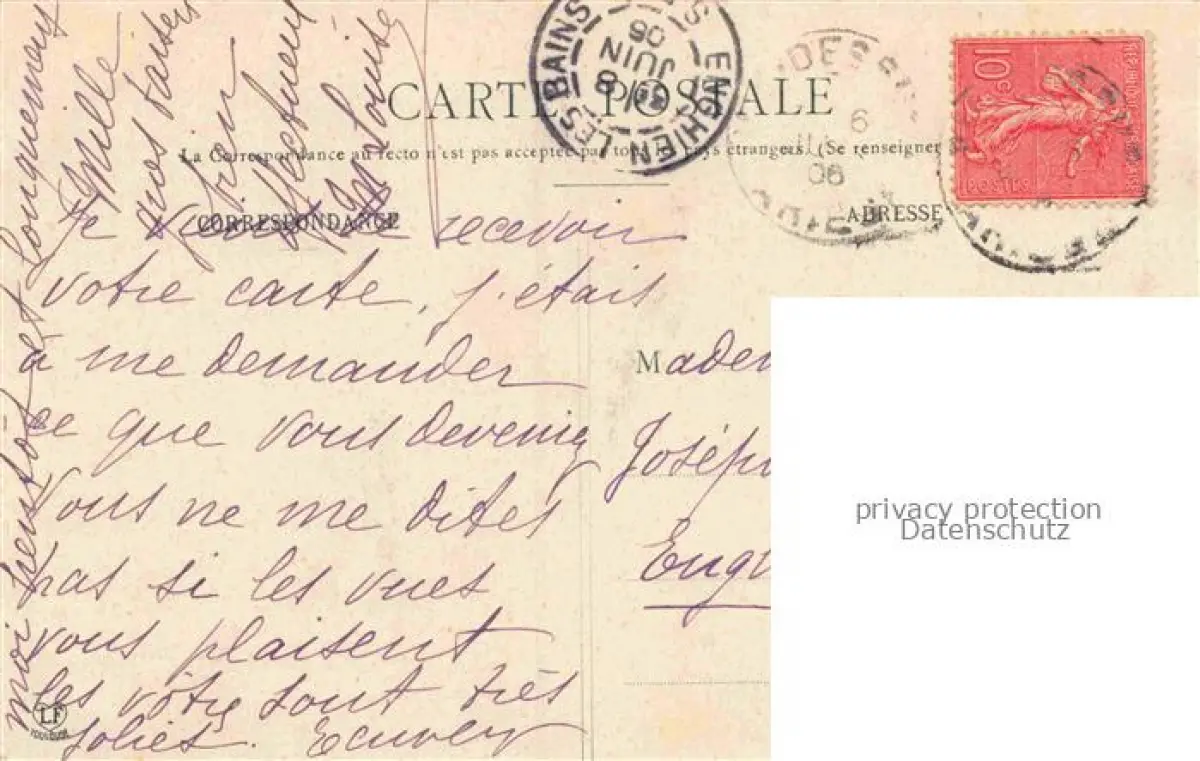 CARTE POSTALE
La Correspondance au recto n'est pas acceptée par tous les pays étrangers (Se renseigner
CORRESPONDANCE
ADRESSE
ENGHIEN LES BAINS
8
JUIN
06
6
06
10c
POSTES
Je viens de recevoir
votre carte, j'étais
à me demander
ce que vous deveniez
Vous ne me dites
pas si les vues
vous plaisent
les vôtres sont très
jolies. Ecrivez
moi bientôt et longuement
Mille
bien affectueux
Louise
Madem
Joséph
Eng
LF
TOULOUSE
privacy protection
Datenschutz